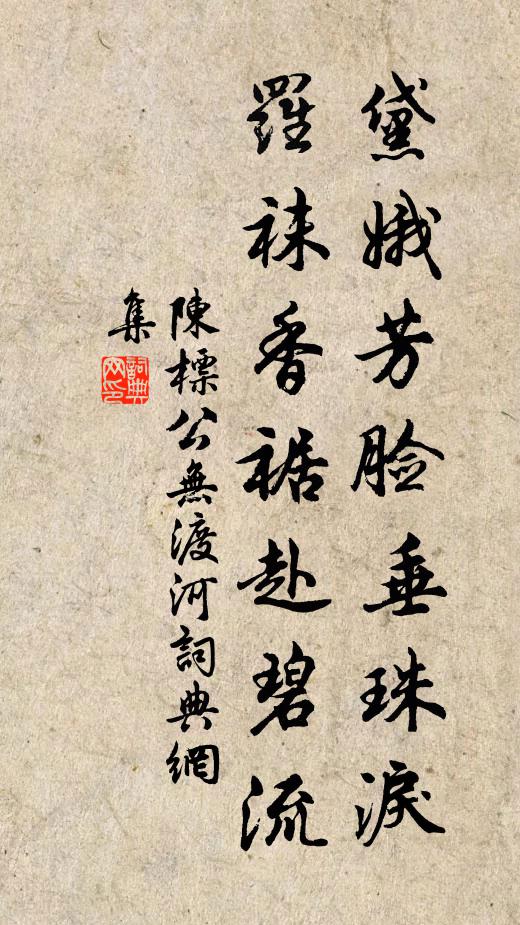 黛娥芳脸垂珠淚
羅袜香裾赴碧流
陳標公無渡河詞典網
集
詞典網印